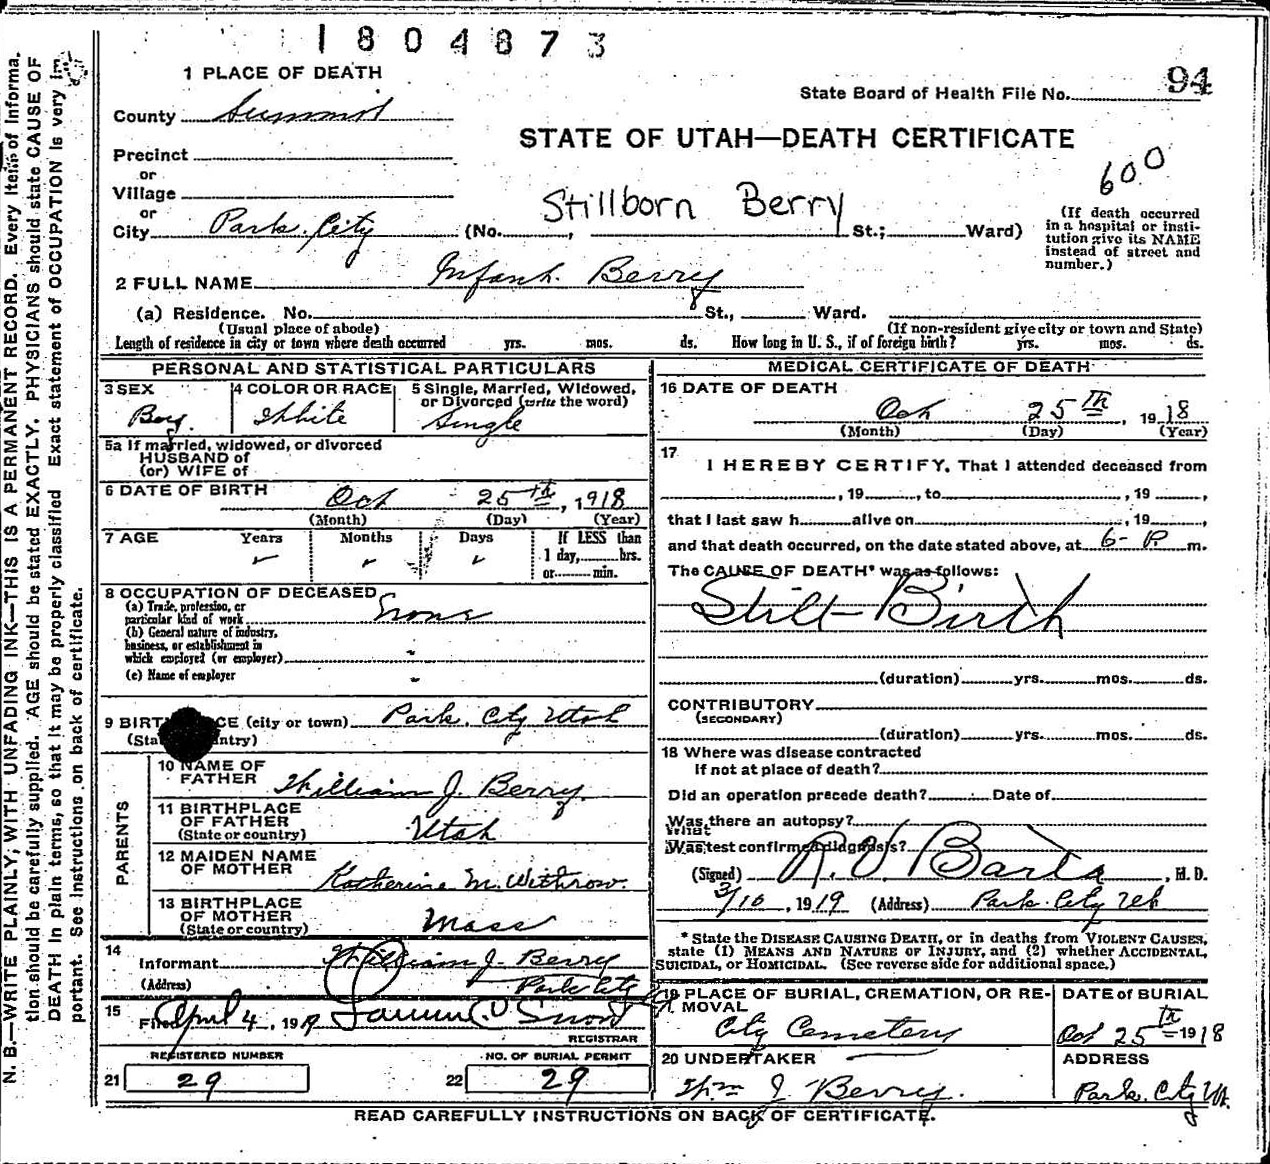 1804873
94
State Board of Health File No.
STATE OF UTAH—DEATH CERTIFICATE
600
1 PLACE OF DEATH
County Summit
Precinct
or
Village
or
City Park City (No. , Stillborn Berry St.; Ward)
(If death occurred
in a hospital or insti-
tution give its NAME
instead of street and
number.)
2 FULL NAME Infant. Berry
(a) Residence. No. St., Ward.
(Usual place of abode) (If non-resident give city or town and State)
Length of residence in city or town where death occurred yrs. mos. ds. How long in U. S., if of foreign birth? yrs. mos. ds.
PERSONAL AND STATISTICAL PARTICULARS
3 SEX
Boy.
4 COLOR OR RACE
White
5 Single, Married, Widowed,
or Divorced (write the word)
Single
5a If married, widowed, or divorced
HUSBAND of
(or) WIFE of
6 DATE OF BIRTH Oct 25th, 1918
(Month) (Day) (Year)
7 AGE Years Months Days If LESS than
1 day, hrs.
or min.
8 OCCUPATION OF DECEASED
(a) Trade, profession, or
particular kind of work None
(b) General nature of industry,
business, or establishment in
which employed (or employer)
(c) Name of employer
9 BIRT CE (city or town) Park. City Utah
(Sta ntry)
PARENTS
10 NAME OF
FATHER William J. Berry.
11 BIRTHPLACE
OF FATHER
(State or country) Utah
12 MAIDEN NAME
OF MOTHER Katherine M. Withrow.
13 BIRTHPLACE
OF MOTHER
(State or country) Mass
14
Informant William J. Berry
(Address) Park City
15
Filed April 4, 1919
REGISTRAR
REGISTERED NUMBER
21 29
NO. OF BURIAL PERMIT
22 29
MEDICAL CERTIFICATE OF DEATH
16 DATE OF DEATH
Oct 25th, 1918
(Month) (Day) (Year)
17
I HEREBY CERTIFY, That I attended deceased from
, 19 , to , 19 ,
that I last saw h alive on , 19 ,
and that death occurred, on the date stated above, at 6- P m.
The CAUSE OF DEATH* was as follows:
Still-Birth
(duration) yrs. mos. ds.
CONTRIBUTORY
(SECONDARY)
(duration) yrs. mos. ds.
18 Where was disease contracted
if not at place of death?
Did an operation precede death? Date of
Was there an autopsy?
What
Was test confirmed diagnosis?
(Signed) , M. D.
3/10, 1919 (Address) Park City Utah
* State the DISEASE CAUSING DEATH, or in deaths from VIOLENT CAUSES,
state (1) MEANS AND NATURE OF INJURY, and (2) whether ACCIDENTAL,
SUICIDAL, or HOMICIDAL. (See reverse side for additional space.)
19 PLACE OF BURIAL, CREMATION, OR RE-
MOVAL
City Cemetery
DATE of BURIAL
Oct 25th 1918
20 UNDERTAKER
Wm J. Berry.
ADDRESS
Park. City Ut.
READ CAREFULLY INSTRUCTIONS ON BACK OF CERTIFICATE.
N. B.—WRITE PLAINLY, WITH UNFADING INK—THIS IS A PERMANENT RECORD. Every item of informa-
tion should be carefully supplied. AGE should be stated EXACTLY. PHYSICIANS should state CAUSE OF
DEATH in plain terms, so that it may be properly classified Exact statement of OCCUPATION is very im-
portant. See instructions on back of certificate.